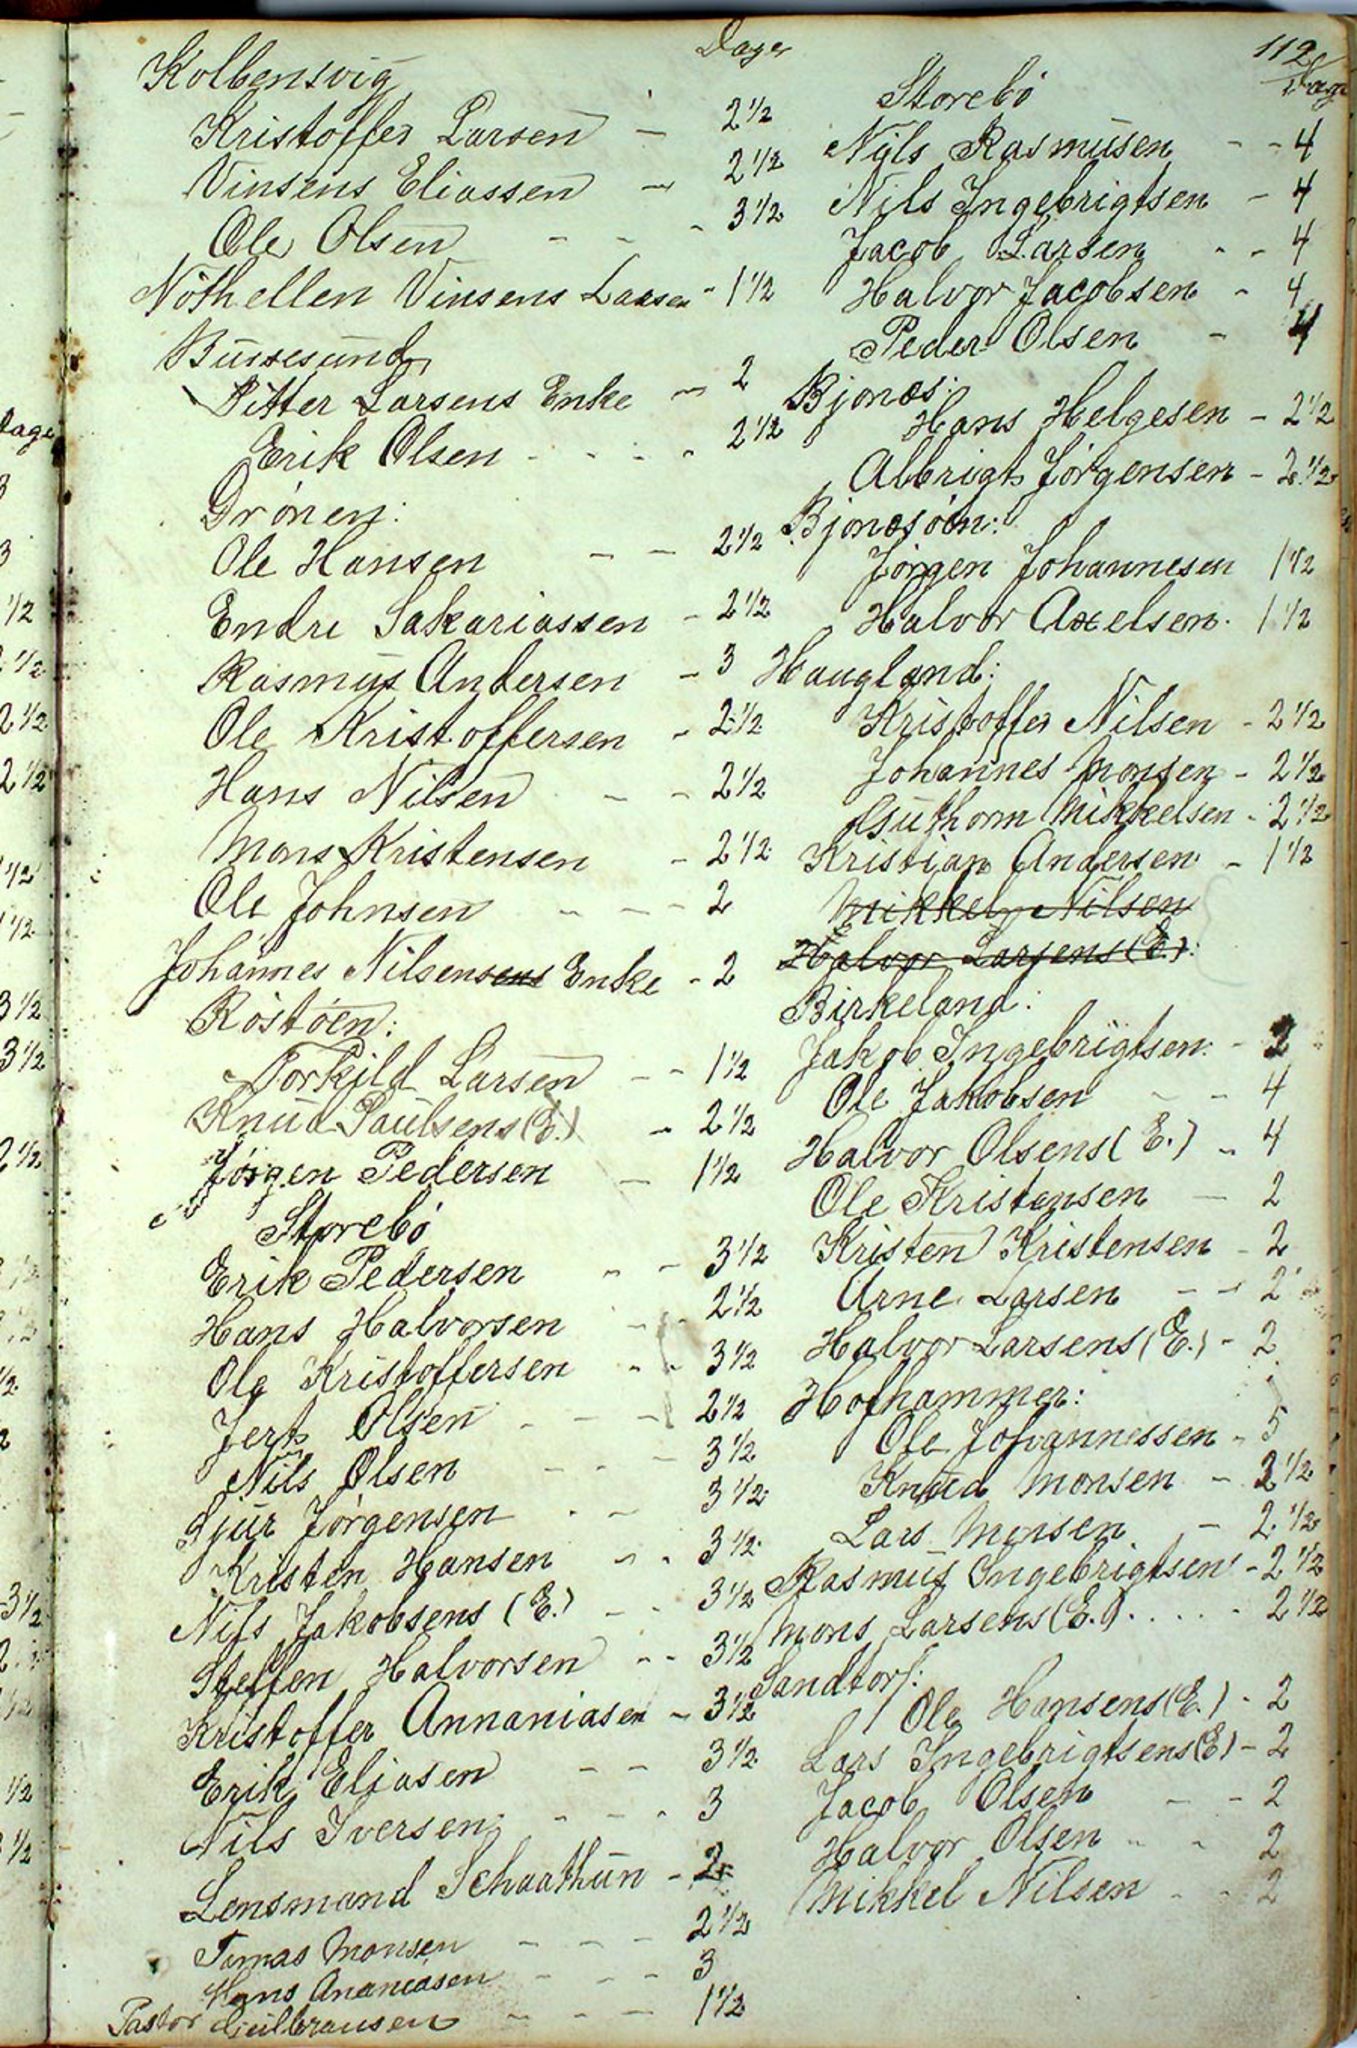 Dager
Kolbensvig
Kristoffer Larsen - 2 1/2
Vinsens Eliassen - 2 1/2
Ole Olsen - - - 3 1/2
Nöthellen Vinsens Larsen - 1 1/2
Bussesund
Pitter Larsens Enke - 2
Erik Olsen - - - - 2 1/2
Drönen:
Ole Hansen - - 2 1/2
Endre Sakariassen - 2 1/2
Rasmus Andersen - 3
Ole Kristoffersen - 2 1/2
Hans Nilsen - - 2 1/2
Mons Kristensen - 2 1/2
Ole Johnsen - - - 2
Johannes Nilsens Enke - 2
Röstöen:
Torkild Larsen - - 1 1/2
Knud Paulsens (E.) - 2 1/2
Jörgen Pedersen - 1 1/2
Storebö
Erik Pedersen - - 3 1/2
Hans Halvorsen - - 2 1/2
Ole Kristoffersen - - 3 1/2
Jert Olsen - - - 2 1/2
Nils Olsen - - - 3 1/2
Sjur Jörgensen - - 3 1/2
Kristen Hansen - - 3 1/2
Nils Jakobsens (E.) - - 3 1/2
Steffen Halvorsen - - 3 1/2
Kristoffer Annaniasen - 3 1/2
Erik Eliasen - - 3 1/2
Nils Iversen - - - 3
Lensmand Schaathun - 2
Tomas Monsen - - - 2 1/2
Hans Ananiasen - - - 3
Pastor Gulbransen - - - 1 1/2
112
Dage
Storebö
Nils Rasmusen - - 4
Nils Ingebrigtsen - 4
Jacob Larsen - - 4
Halvor Jacobsen - 4
Peder Olsen - 4
Bjonæs:
Hans Helgesen - 2 1/2
Albrigt Jörgensen - 2 1/2
Bjonæsöen:
Jörgen Johannesen 1 1/2
Halvor Axelsen. 1 1/2
Haugland:
Kristoffer Nilsen - 2 1/2
Johannes Monsen - 2 1/2
Guthorm Mikkelsen - 2 1/2
Kristian Andersen - 1 1/2
Mikkel Nilsen
Halvor Larsens (E.):
Birkeland:
Jakob Ingebrigtsen: - 2
Ole Jakobsen - - 4
Halvor Olsens (E.) - 4
Ole Kristensen - 2
Kristen Kristensen - 2
Arne Larsen - - 2
Halvor Larsens (E.) - 2
Hofhammer:
Ole Johannessen - 5
Knud Monsen - 2 1/2
Lars Monsen - 2 1/2
Rasmus Ingebrigtsen - 2 1/2
Mons Larsens (E.) . . . . - 2 1/2
Sandtorf:
Ole Hansens (E.) - 2
Lars Ingebrigtsens (E) - 2
Jacob Olsen - - 2
Halvor Olsen - - 2
Mikkel Nilsen - - 2